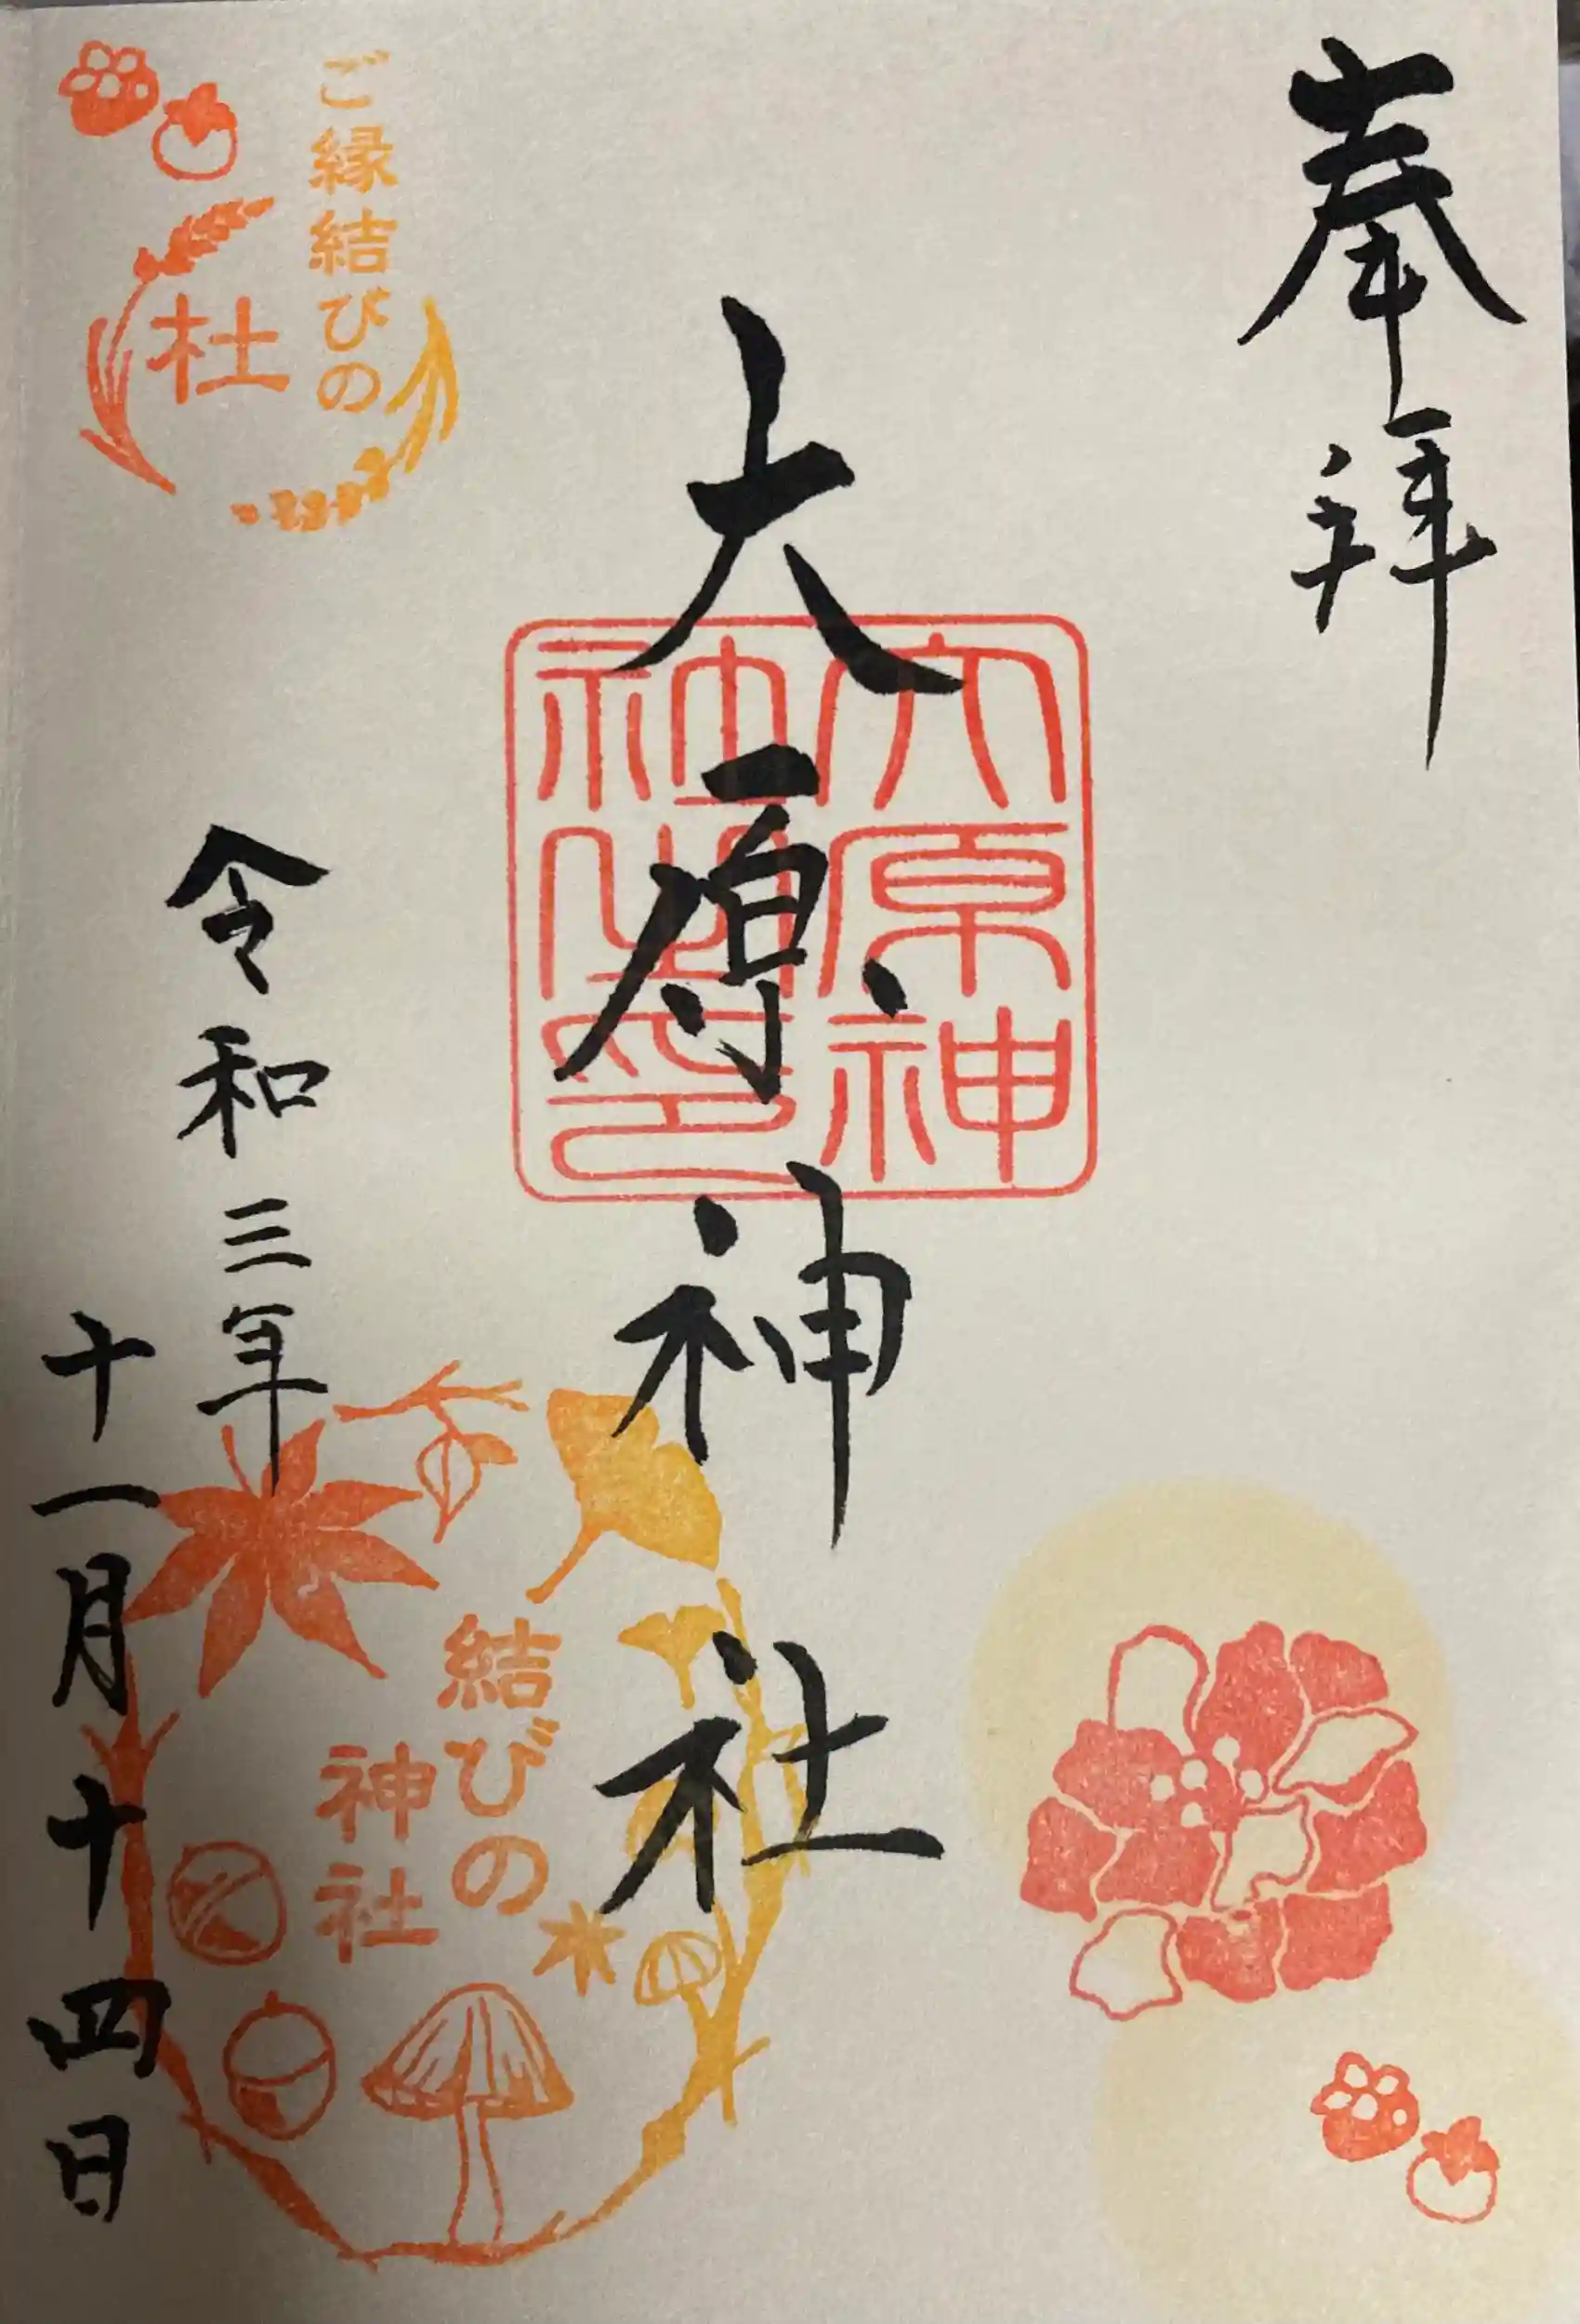 奉拝
大原神社
大原神
社之印
令和三年
十一月十四日
ご縁結びの
杜
結びの
神社